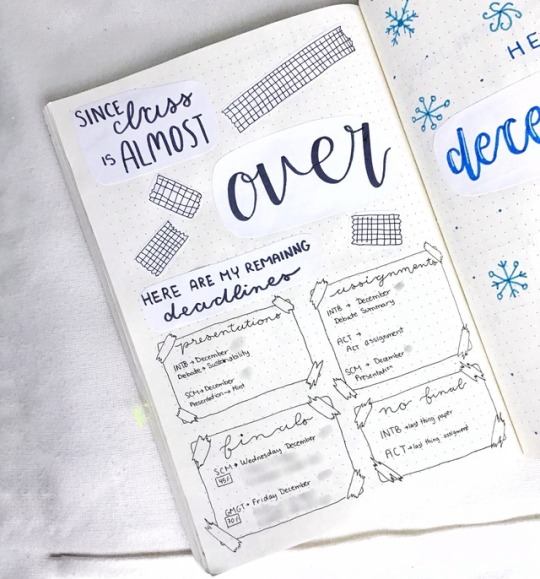 SINCE class
IS ALMOST
over
HERE ARE MY REMAINNG
deadlines
presentations
INTB → December
Debate → Sustainability
SCM → December
Presentation →
assignments
INTB → December
Debate Summary
ACT →
ACT assignment
SCM → December
Presentation
finals
SCM → Wednesday December
GMGT → Friday December
no final
INTB → last thing paper
ACT → last thing assignment
HE
dece